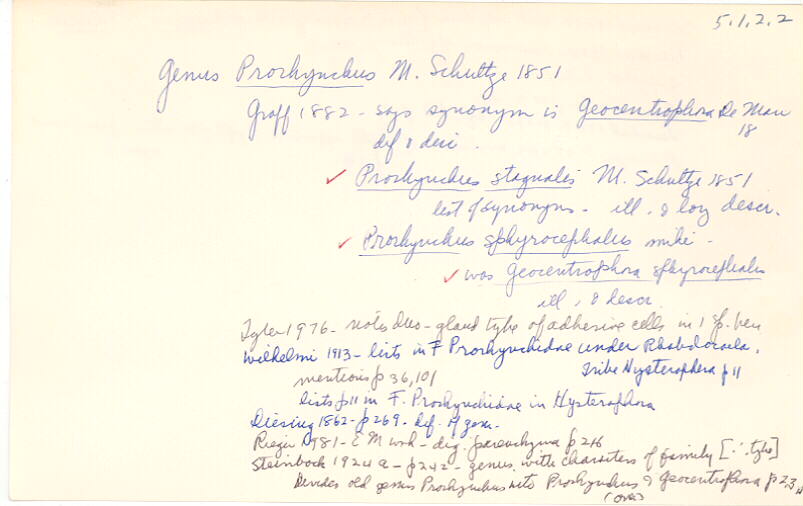 5.1.2.2
Genus Prorhynchus M. Schultze 1851
Graff 1882 - says synonym is Geocentrophora De Man
18
def & descr.
✓ Prorhynchus stagnalis M. Schultze 1851
list of synonyms - ill. & long descr.
✓ Prorhynchus sphyrocephalus mihi -
✓ was Geocentrophora sphyrocephala
ill, & descr
Tyler 1976 - notes duo-gland type of adhesive cells in 1 sp.
Wilhelmi 1913 - lists in F Prorhynchidae under Rhabdocoela,
Tribe Hysterophora p 11
mentions p 36, 101
lists p 11 in F. Prorhynchidae in Hysterophora
Diesing 1862 - p 269 - def. of gen.
Rieger 1981 - EM work - dig. parenchyma p 216
Steinböck 1924 a - p 242 - genus with characters of family [∴ type]
Divides old genus Prorhynchus into Prorhynchus & Geocentrophora p 23
(over)